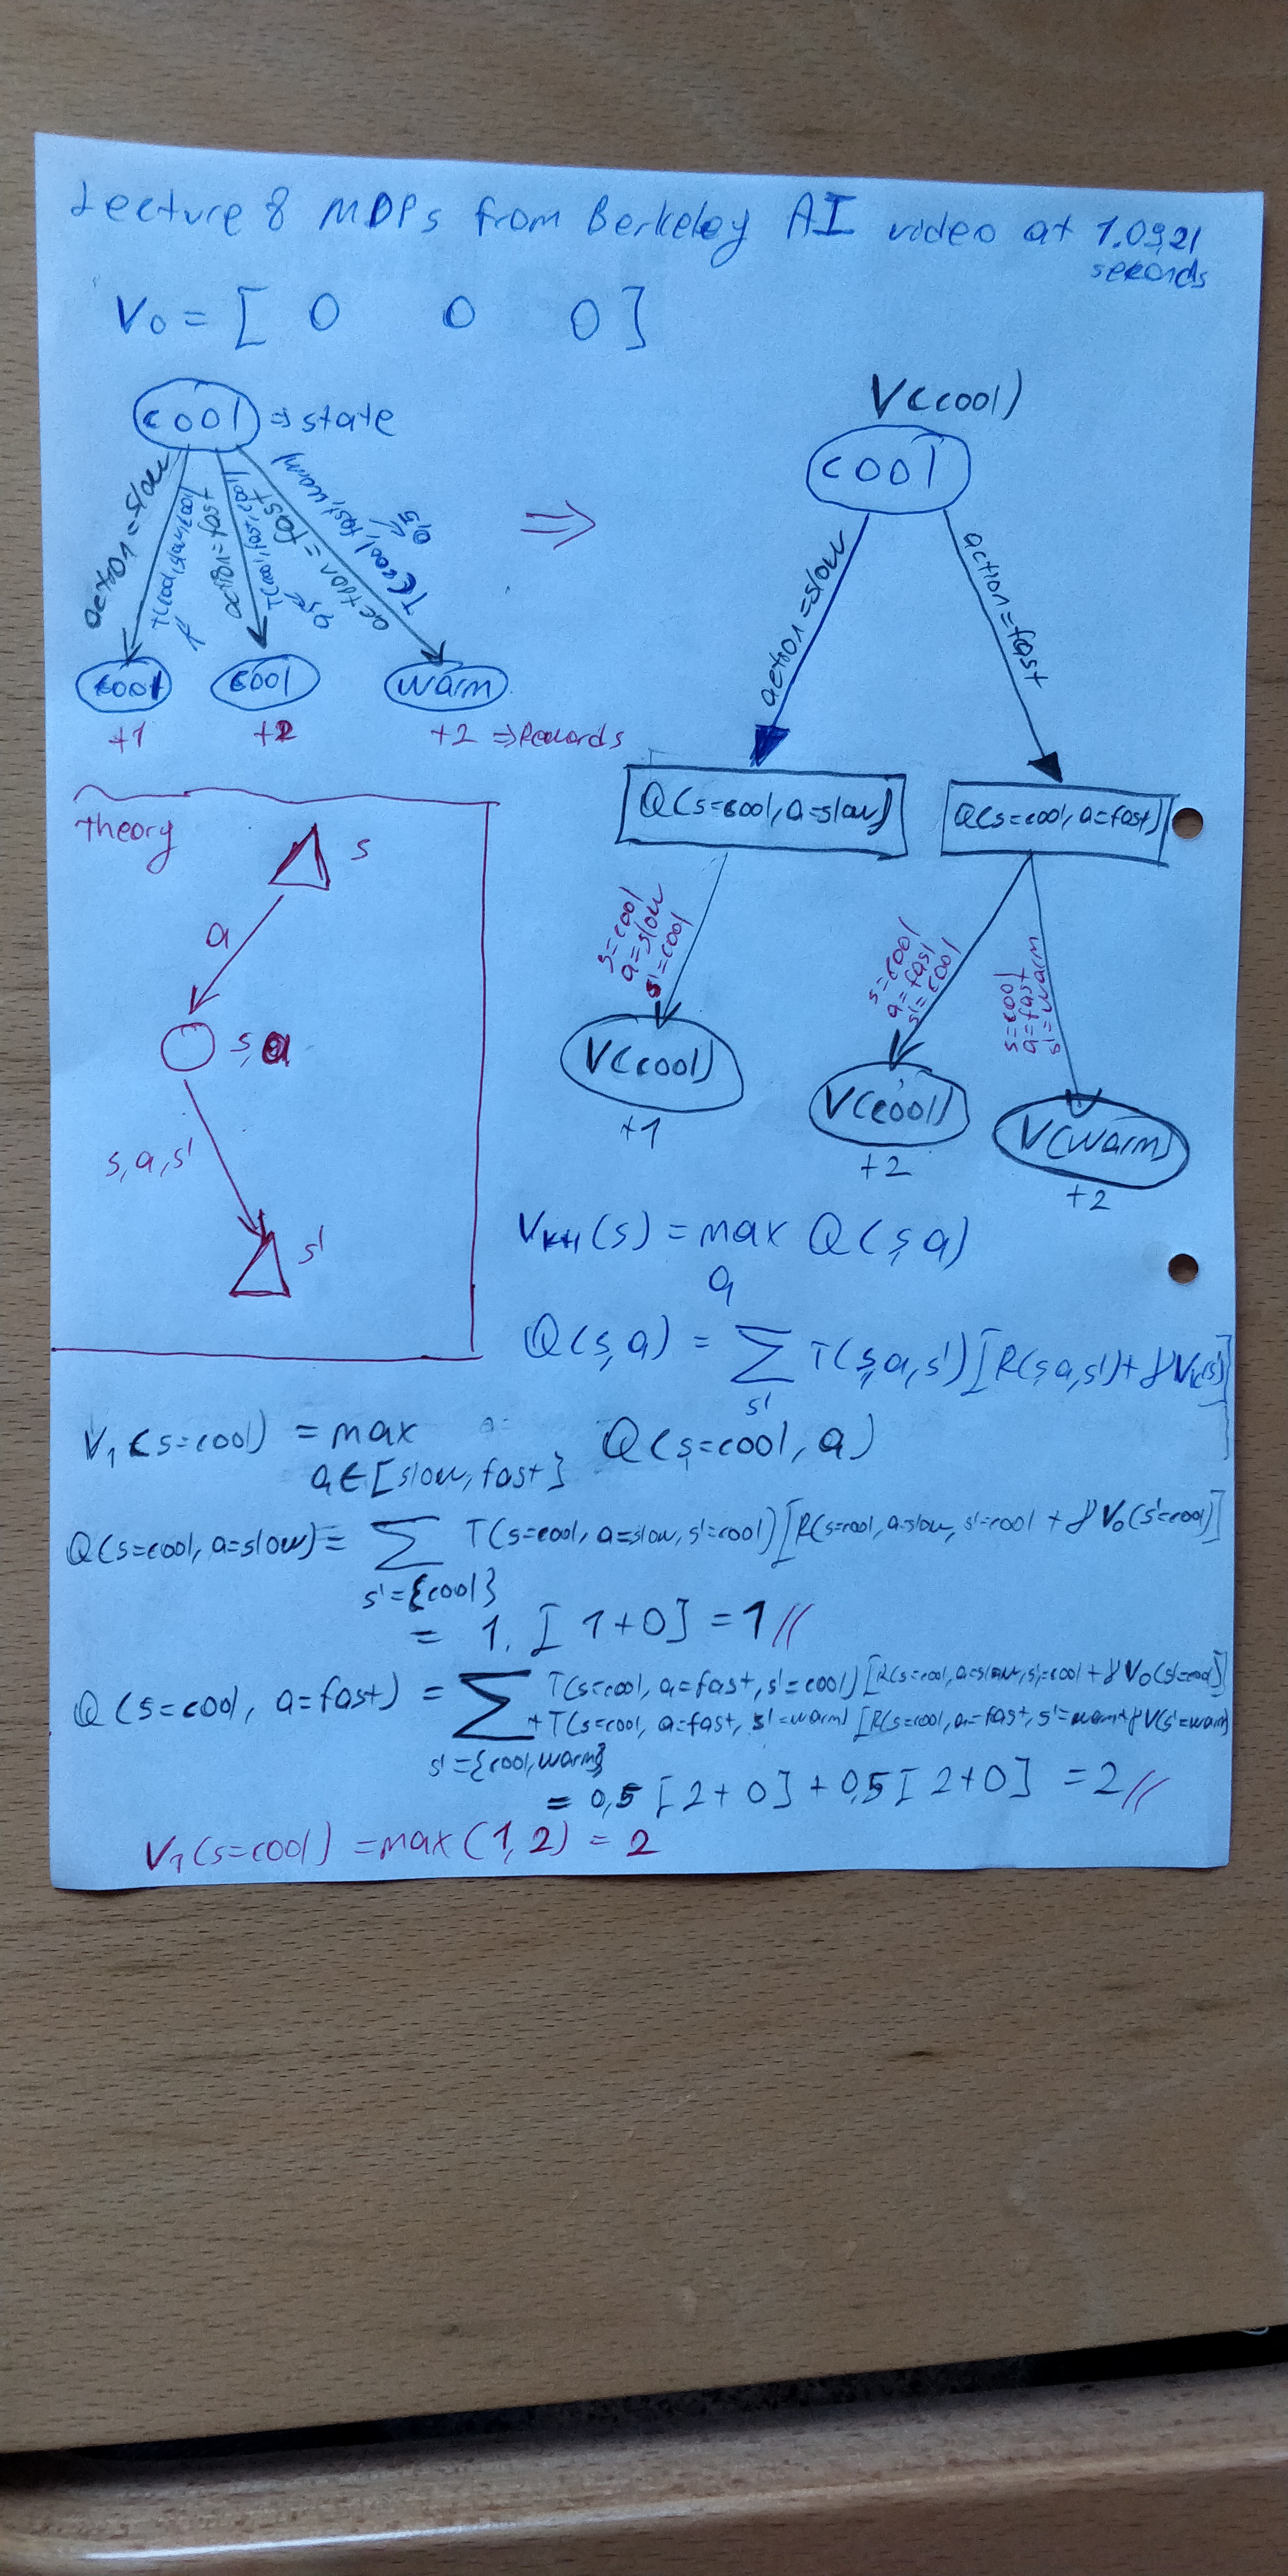 Lecture 8 MDPs from Berkeley AI video at 1.09,21 seconds
V₀ = [ 0 0 0 ]
cool ⇒ state
action = slow
T(cool, slow, cool)
1
action = fast
T(cool, fast, cool)
0,5
action = fast
T(cool, fast, warm)
0,5
cool cool warm
+1 +2 +2 ⇒ Rewards
⇒
V(cool)
cool
action = slow
action = fast
Q(s=cool, a=slow) Q(s=cool, a=fast)
s=cool
a=slow
s'=cool
s=cool
a=fast
s'=cool
s=cool
a=fast
s'=warm
V(cool)
+1
V(cool)
+2
V(warm)
+2
Theory
s
a
s, a
s, a, s'
s'
Vₖ₊₁(s) = max Q(s, a)
a
Q(s, a) = ∑ T(s, a, s') [R(s, a, s') + γVₖ(s')]
s'
V₁(s=cool) = max Q(s=cool, a)
a∈[slow, fast}
Q(s=cool, a=slow) = ∑ T(s=cool, a=slow, s'=cool) [R(s=cool, a=slow, s'=cool + γV₀(s'=cool)]
s'={cool}
= 1. [1+0] = 1//
Q(s=cool, a=fast) = ∑ T(s=cool, a=fast, s'=cool) [R(s=cool, a=slow, s'=cool + γV₀(s'=cool)]
+ T(s=cool, a=fast, s'=warm) [R(s=cool, a=fast, s'=warm + γV(s'=warm)
s'={cool, warm}
= 0,5 [2+0] + 0,5 [2+0] = 2//
V₁(s=cool) = max(1, 2) = 2